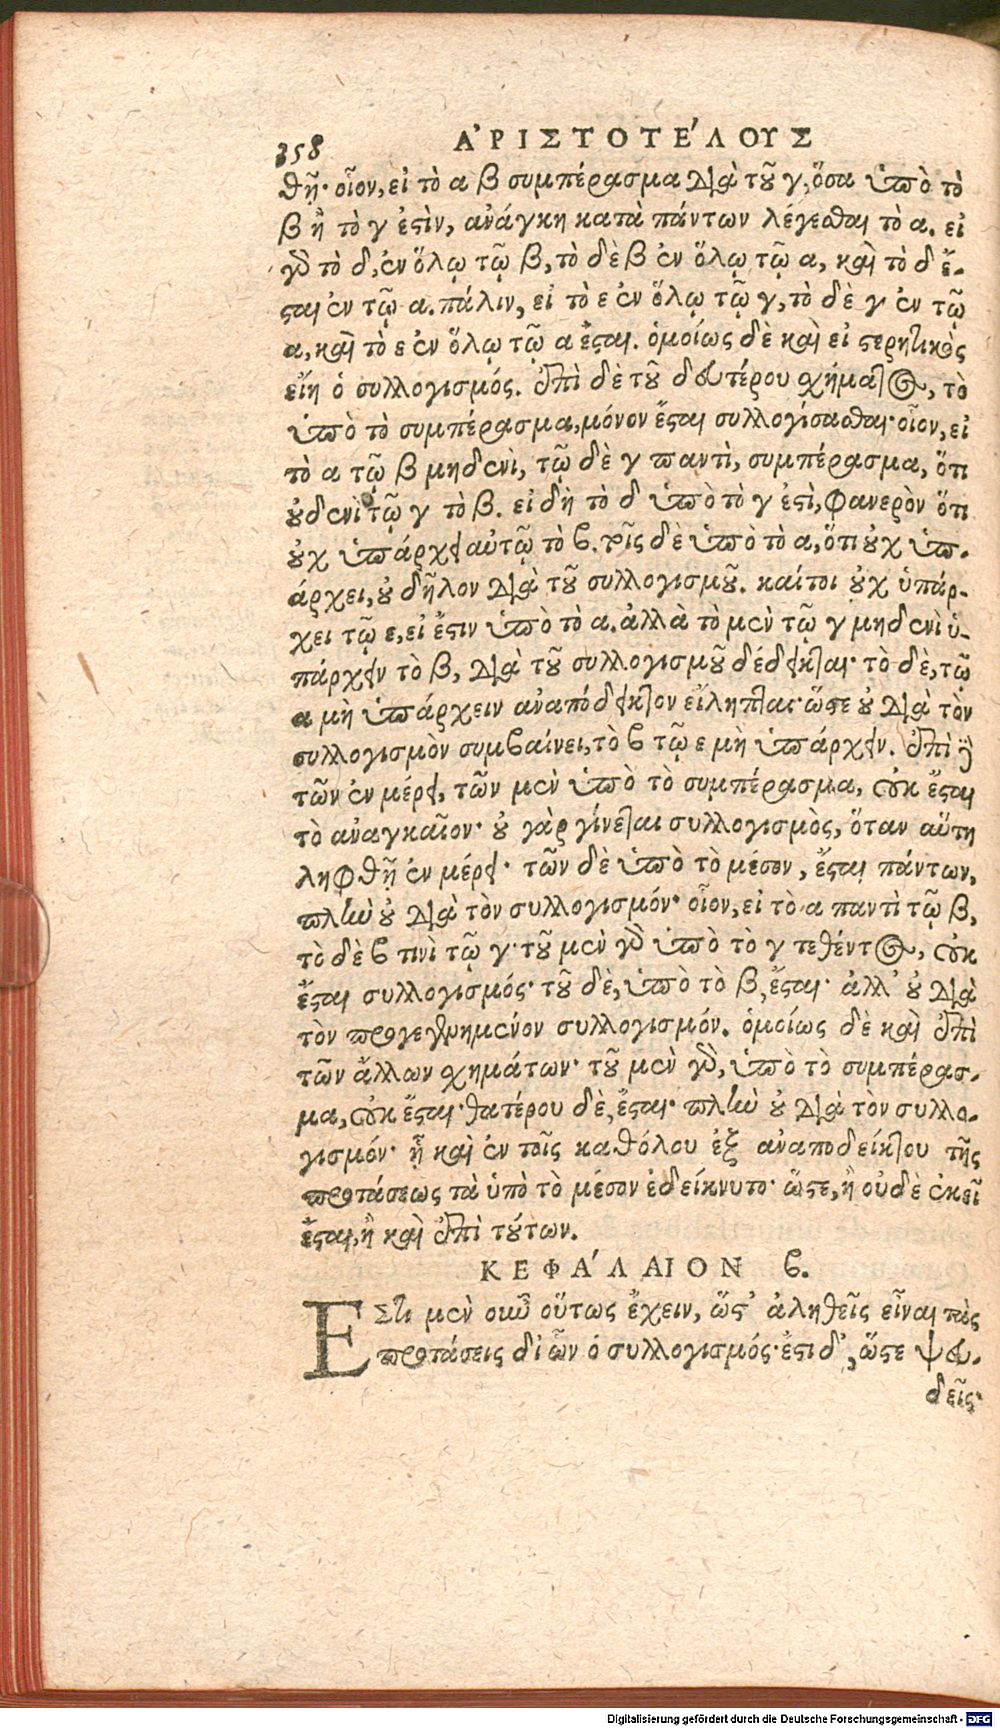 358 ἈΡΙΣΤΟΤΈΛΟΥΣ
θῇ· οἷον, εἰ τὸ α β συμπέρασμα διὰ τοῦ γ, ὅσα ὑπὸ τὸ
β ἢ τὸ γ ἐστὶν, ἀνάγκη κατὰ πάντων λέγεσθαι τὸ α. εἰ
γὰρ τὸ δ, ἐν ὅλῳ τῷ β, τὸ δὲ β ἐν ὅλῳ τῷ α, καὶ τὸ δ ἔ-
σται ἐν τῷ α. πάλιν, εἰ τὸ ε ἐν ὅλῳ τῷ γ, τὸ δὲ γ ἐν τῷ
α, καὶ τὸ ε ἐν ὅλῳ τῷ α ἔσται. ὁμοίως δὲ καὶ εἰ στερητικὸς
εἴη ὁ συλλογισμός. ἐπὶ δὲ τοῦ δευτέρου σχήματος, τὸ
ὑπὸ τὸ συμπέρασμα, μόνον ἔσται συλλογίσασθαι· οἷον, εἰ
τὸ α τῷ β μηδενὶ, τῷ δὲ γ παντὶ, συμπέρασμα, ὅτι
οὐδενὶ τῷ γ τὸ β. εἰ δὴ τὸ δ ὑπὸ τὸ γ ἐστὶ, φανερὸν ὅτι
οὐχ ὑπάρχει αὐτῷ τὸ β. τοῖς δὲ ὑπὸ τὸ α, ὅτι οὐχ ὑπ-
άρχει, οὐ δῆλον διὰ τοῦ συλλογισμοῦ. καίτοι οὐχ ὑπάρ-
χει τῷ ε, εἰ ἔστιν ὑπὸ τὸ α. ἀλλὰ τὸ μὲν τῷ γ μηδενὶ ὑ-
πάρχειν τὸ β, διὰ τοῦ συλλογισμοῦ δέδεικται· τὸ δὲ, τῷ
α μὴ ὑπάρχειν ἀναπόδεικτον εἴληπται· ὥστε οὐ διὰ τὸν
συλλογισμὸν συμβαίνει, τὸ β τῷ ε μὴ ὑπάρχειν. ἐπὶ δὲ
τῶν ἐν μέρει, τῶν μὲν ὑπὸ τὸ συμπέρασμα, οὐκ ἔσται
τὸ ἀναγκαῖον· οὐ γὰρ γίνεται συλλογισμὸς, ὅταν αὕτη
ληφθῇ ἐν μέρει· τῶν δὲ ὑπὸ τὸ μέσον, ἔσται πάντων,
πλὴν οὐ διὰ τὸν συλλογισμόν· οἷον, εἰ τὸ α παντὶ τῷ β,
τὸ δὲ β τινὶ τῷ γ· τοῦ μὲν γὰρ ὑπὸ τὸ γ τεθέντος, οὐκ
ἔσται συλλογισμός· τοῦ δὲ, ὑπὸ τὸ β, ἔσται· ἀλλ' οὐ διὰ
τὸν προγεγενημένον συλλογισμόν. ὁμοίως δὲ καὶ ἐπὶ
τῶν ἄλλων σχημάτων· τοῦ μὲν γὰρ, ὑπὸ τὸ συμπέρασ-
μα, οὐκ ἔσται· θατέρου δὲ, ἔσται· πλὴν οὐ διὰ τὸν συλλο-
γισμόν· ᾗ καὶ ἐν τοῖς καθόλου ἐξ ἀναποδείκτου τῆς
προτάσεως τὰ ὑπὸ τὸ μέσον ἐδείκνυτο· ὥστε, ἢ οὐδὲ ἐκεῖ
ἔσται, ἢ καὶ ἐπὶ τούτων.
ΚΕΦΆΛΑΙΟΝ β.
ΕΣτι μὲν οὖν οὕτως ἔχειν, ὥστ' ἀληθεῖς εἶναι τὰς
προτάσεις δι' ὧν ὁ συλλογισμός· ἔστι δ', ὥστε ψευ-
δεῖς·
Digitalisierung gefördert durch die Deutsche Forschungsgemeinschaft - DFG